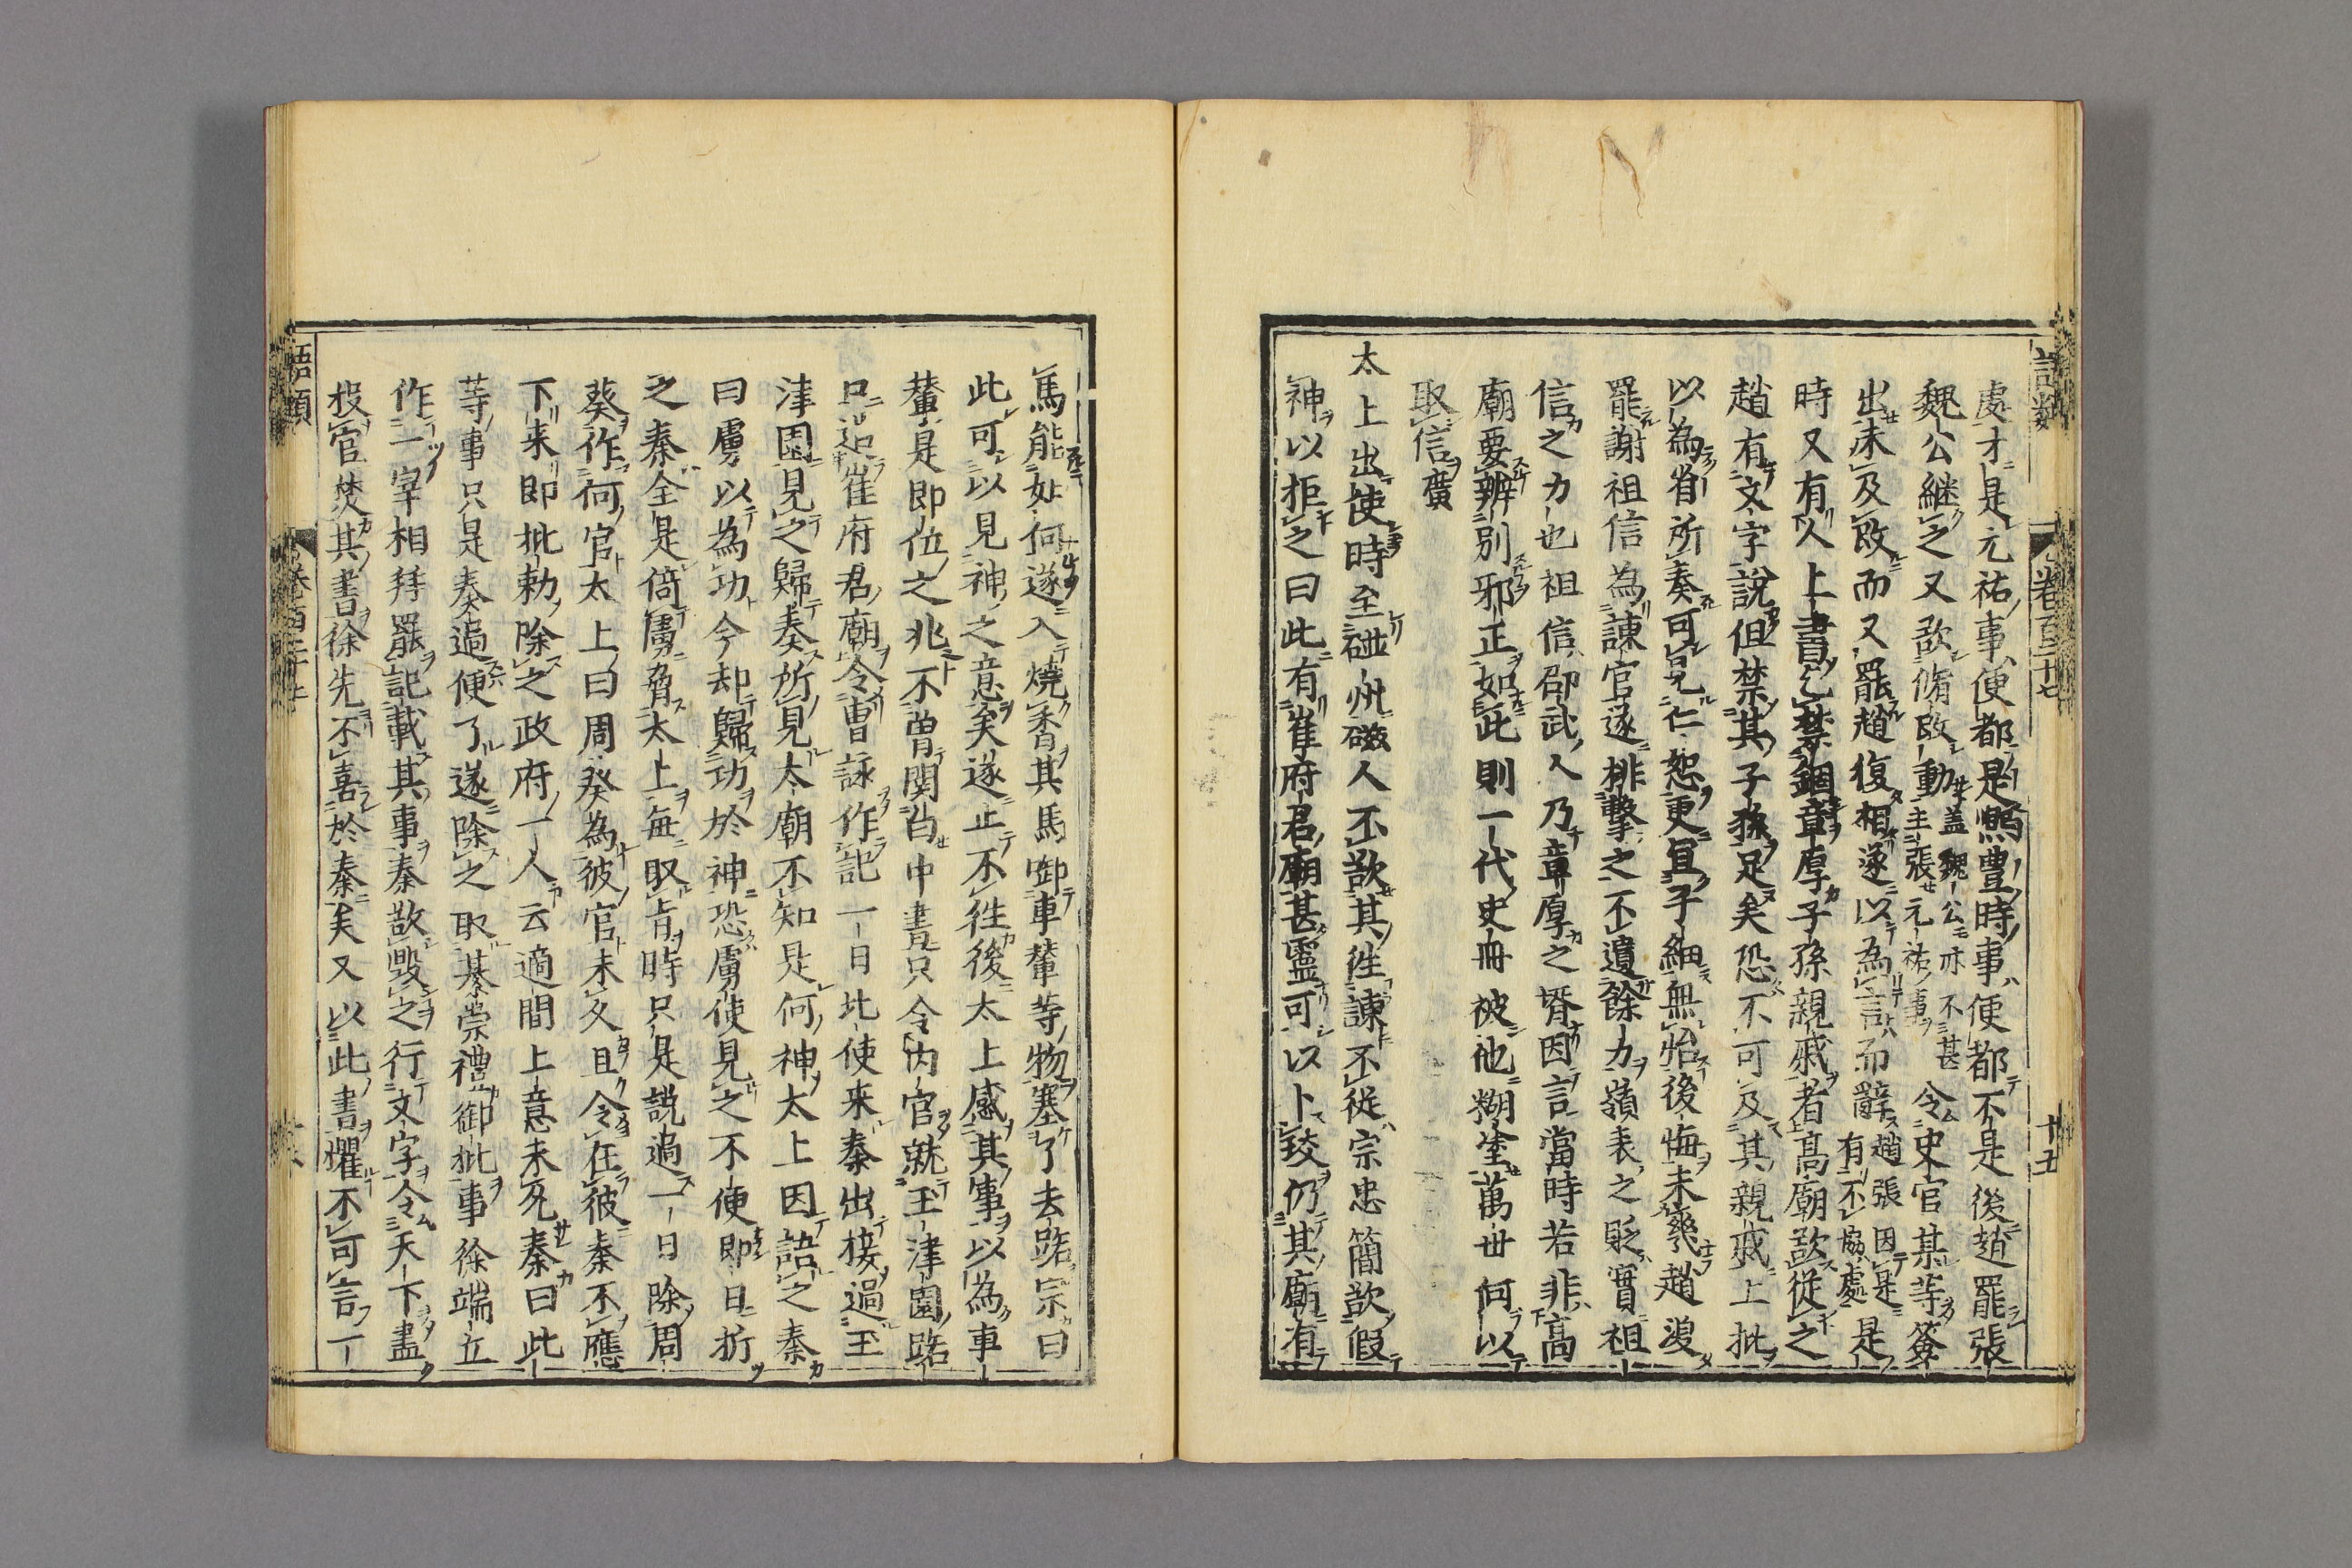 處才是元祐事便都是熙豊時事便都不是後趙罷張
魏公継之又欲脩改動蓋魏公亦不甚主張元祐事令史官某等簽
出未及改而又罷趙復相遂以為言而辭趙張因是有不協處是
時又有人上書乞禁錮章厚子孫親戚者髙廟欲従之
趙有文字說但禁其子孫足矣恐不可及其親戚上批
以為省所奏可見仁恕更宜子細無怡後悔未幾趙復
罷謝祖信為諫官遂排擊之不遺餘力嶺表之貶實祖
信之力也祖信邵武人乃章厚之壻因言當時若非髙
廟要辨別邪正如此則一代史冊被他糊塗萬世何以
取信廣
太上出使時至磁州磁人不欲其徃諫不従宗忠簡欲假
神以拒之曰此有崔府君廟甚靈可以卜珓仍其廟有
馬能如何遂入燒香其馬御車輦等物塞了去路宗曰
此可以見神之意矣遂止不徃後太上感其事以為事
輦是即位之兆不曽関白中書只令内官就玉津園路
口造崔府君廟令曹詠作記一日北使来秦出接過玉
津園見之歸奏所見太廟不知是何神太上因語之秦
曰虜以為功今却歸功於神恐虜使見之不便即日折
之秦全是倚虜脅太上毎取旨時只是說過一日除周
葵作何官太上曰周葵為彼官未久且令在彼秦不應
下来即批勅除之政府一人云適間上意未允秦曰此
等事只是奏過便了遂除之取綦崇禮御批事徐端立
作一宰相拜罷記載其事秦敢毀之行文字令天下盡
投官焚其書徐先不喜於秦矣又以此書懼不可言一
語類
卷百三十七
十五
語類
卷百二十七